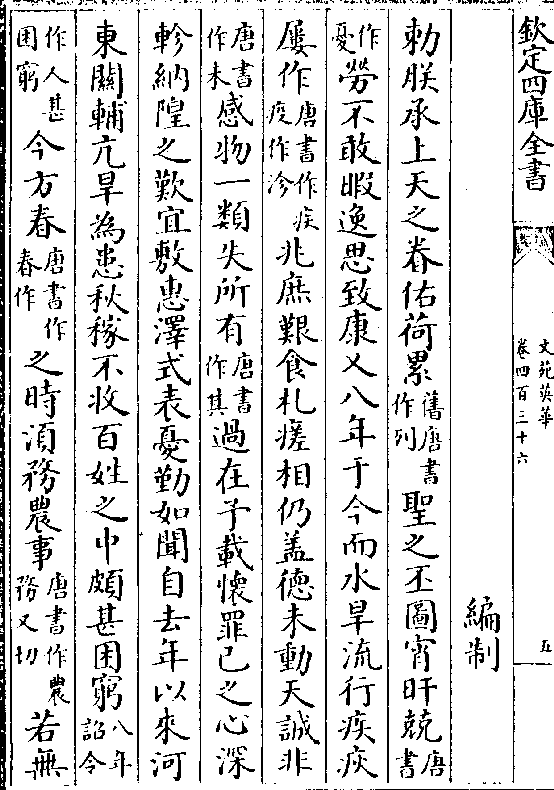 欽定四庫全書
文苑英華
卷四百三十六
五
編制
勅朕承上天之眷佑荷累舊唐書作列聖之丕圖宵旰兢唐書
作憂勞不敢暇逸思致康乂八年于今而水旱流行疾疢
屢作唐書作疾疫作沴兆庶艱食札瘥相仍盖德未動天誠非
唐書作未感物一類失所有唐書作其過在予載懷罪己之心深
軫納隍之歎宜敷惠澤式表憂勤如聞自去年以來河
東關輔亢旱為患秋稼不收百姓之中頗甚困窮八年詔今
作人甚困窮今方春唐書作春作之時須務農事唐書作農務又切若無